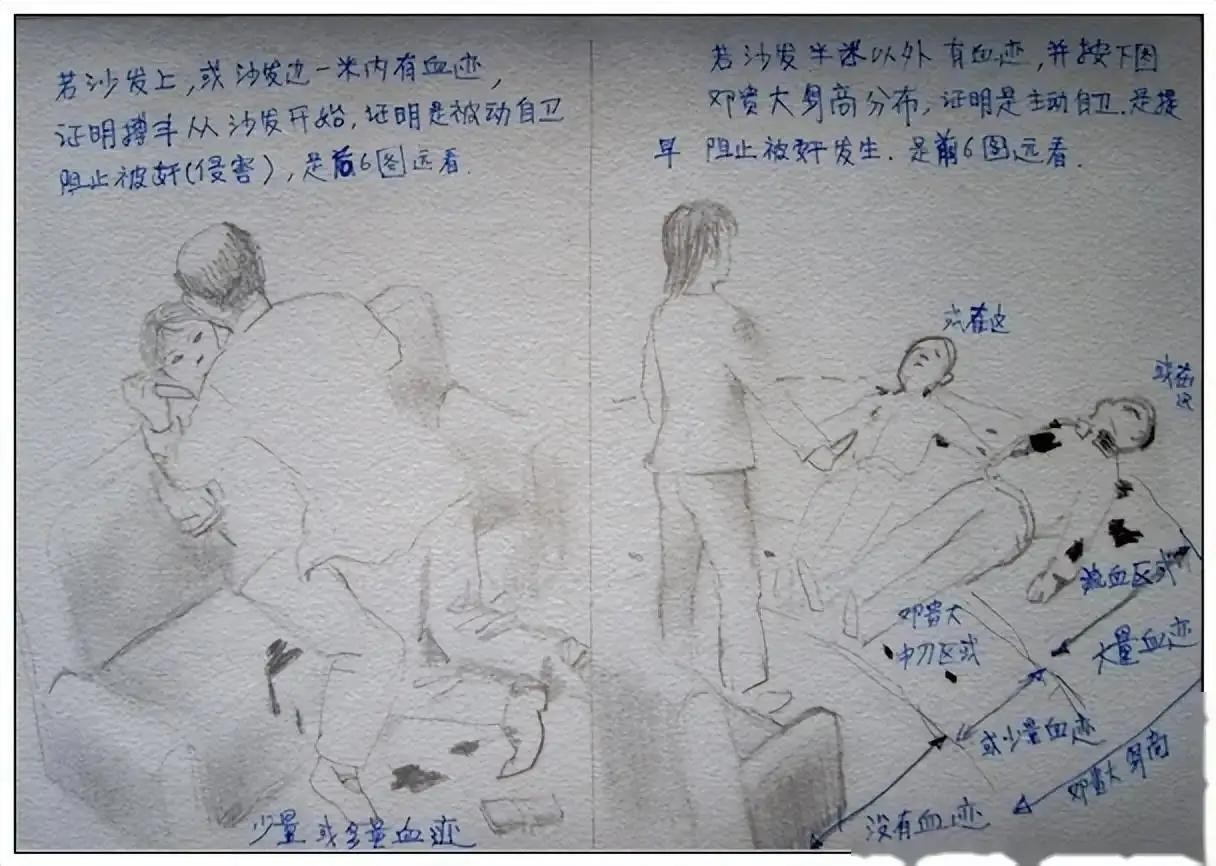 若沙发上,或沙发边一米内有血迹,
证明搏斗从沙发开始,证明是被动自卫
阻止被奸(侵害),是后6图远看.
若沙发半米以外有血迹,并按下图
邓贵大身高分布,证明是主动自卫.是提
早 阻止被奸发生.是前6图远看.
或在这
或在这
流血区或
邓贵大
中刀区或
大量血迹
或少量血迹
邓贵大身高
没有血迹
少量或多量血迹